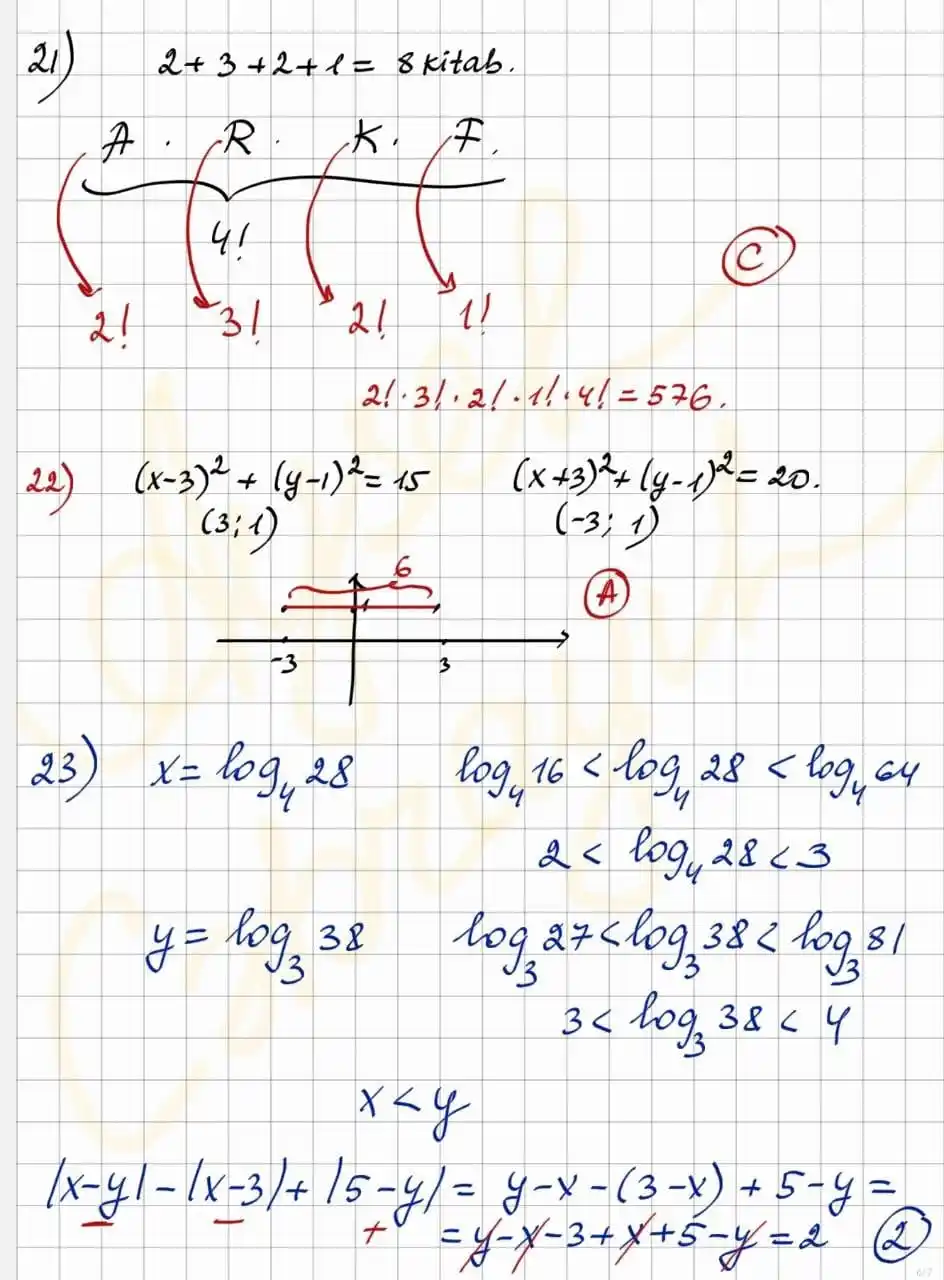 21) 2+3+2+1= 8 kitab.
A. R. K. F.
4!
C
2! 3! 2! 1!
2!·3!·2!·1!·4! = 576.
22) (x-3)²+(y-1)²=15 (x+3)²+(y-1)²=20.
(3;1) (-3; 1)
6
A
1
-3 3
23) x= log₄28 log₄16 < log₄28 < log₄64
2 < log₄28 < 3
y = log₃38 log₃27<log₃38< log₃81
3 < log₃38 < 4
x < y
|x-y|-|x-3|+|5-y| = y-x-(3-x)+5-y =
- - + = y-x-3+x+5-y = 2 2